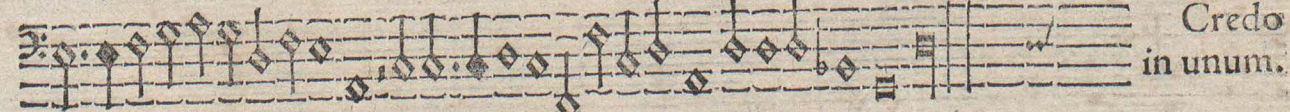 Credo
in unum.